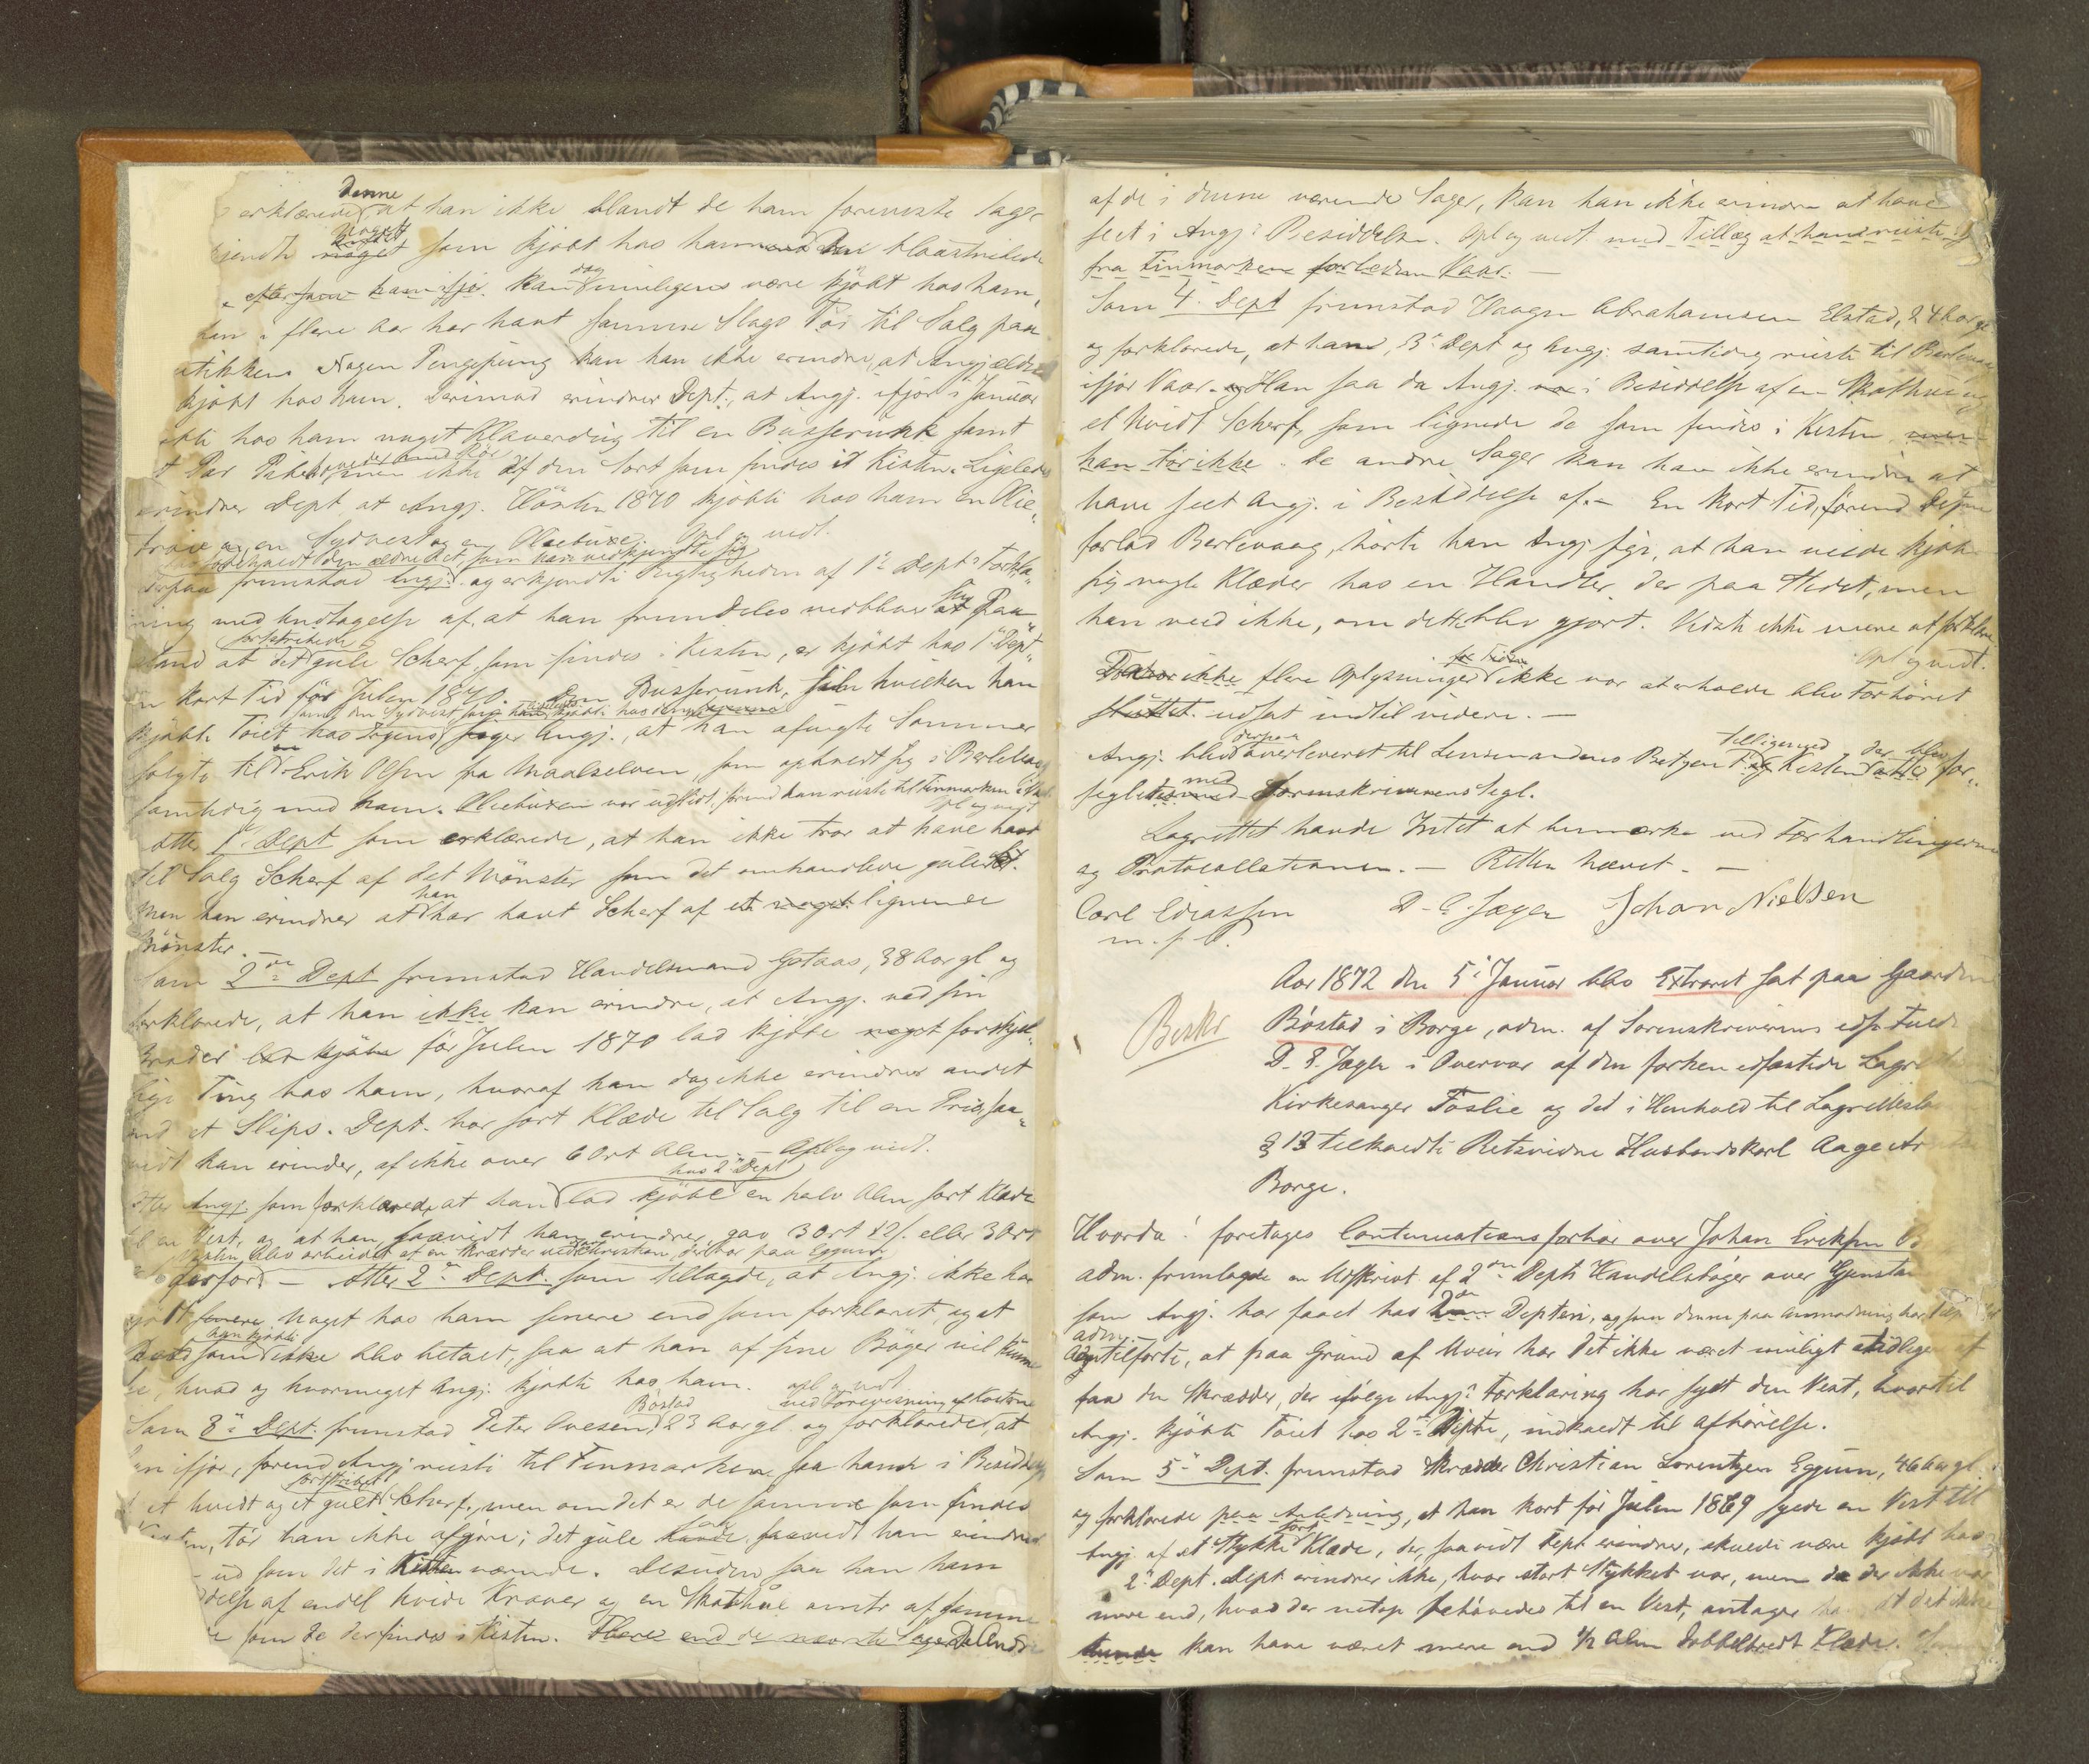 Denne
erklærede at han ikke blandt de ham foreviste Sager
Noget
kjendte noget som kjøbt hos ham
dog
kan muligens være kjøbt hos ham,
han i flere Aar har havt samme Slags Tøi til Salg paa
Nogen Pengepung kan han ikke erindre, at Angjældende
kjøbt hos ham. Derimod erindrer Dept., at Angj. ifjor i Januar
hos ham noget Klaverdug til en Busserunk samt
Par men ikke af den Sort som findes i Kisten. Ligeledes
erindrer Dept. at Angj. Høsten 1870 kjøbte hos ham en Olie-
trøie og en Sydvest og en Oliebuxe. Opl. og vedt.
fremstod Angj. og erkjendte Rigtigheden af 1ste Depts Forkla-
ring med Undtagelse af, at han fremdeles vedbliver sin Paa-
stand at det gule Scherf, som findes i Kisten, er kjøbt hos 1ste Dept
en kort Tid før Julen 1870. Den Busserunk, til hvilken han
kjøbte Tøiet siger Angj., at han afvigte Sommer
solgte til en Erik Olsen fra Maalselven, som opholdt sig i Berlevaag
samtidig med ham. Oliebuxen var udslidt, førend han reiste til Finmarken
Opl. og vedt.
Atter 1ste Dept som erklærede, at han ikke tror at have havt
til Salg Scherf af det Mønster som det omhandlede gule
han
Men han erindrer at har havt Scherf af et lignende
Mønster. —
Som 2den Dept fremstod Handelsmand Gotaas, 38 Aar gl og
forklarede, at han ikke kan erindre, at Angj. ved sin
Broder før Julen 1870 lod kjøbe noget forskjel-
lige Ting hos ham, hvoraf han dog ikke erindrer andet
end et Slips. Dept. har sort Klæde til Salg til en Pris, saa-
vidt han erindrer, af ikke over 6 Ort Alen. — Opl og vedt.
hos 2 Dept
Atter Angj. som forklarede, at han lod kjøbe en halv Alen sort Klæde
til en Vest, og at han, saavidt han erindrer, gav 3 Ort 12 s. eller 3 Ort
Vesten blev arbeidet af en Skrædder ved Navn Christian, der bor paa Eggum
derfor — Atter 2den Dept. som tillagde, at Angj. ikke har
kjøbt Noget hos ham senere end som forklaret, og at
han kjøbte
som ikke blev betalt, saa at han af sine Bøger vil kunne
se, hvad og hvormeget Angj. kjøbte hos ham. opl og vedt
Bøstad ved Forevisning af Kosterne
Som 3die Dept. fremstod Peter Ovesen, 23 Aar gl. og forklarede, at
han ifjor, førend Angj reiste til Finmarken saa ham i Besiddelse
et hvidt og et gult Scherf, men om det er de samme som findes
i Kisten, tør han ikke afgjøre; det gule saavidt han erindrer
ud som det i Kisten værende. Desuden saa han ham
i Besiddelse af endel hvide Kraver og en Skothue omtr af samme
som de der findes i Kisten. Flere end de nævnte Sager De Andre
af de i denne værende Sager, kan han ikke erindre at have
seet i Angj.s Besiddelse. Opl og vedt. med Tillæg at han reiste
fra Finmarken forleden Vaar. —
Som 4de Dept fremstod Haagen Abrahamsen Elstad, 24 Aar gl
og forklarede, at han, 3die Dept og Angj. samtidig reiste til Berlevaag
ifjor Vaar. Han saa da Angj. i Besiddelse af en Skothue og
et hvidt Scherf, som lignede de som findes i Kisten men
han tør ikke. De andre Sager kan han ikke erindre at
have seet Angj. i Besiddelse af. — En kort Tid, førend Depten
forlod Berlevaag, hørte han Angj sige, at han vilde kjøbe
sig nogle Klæder hos en Handler der paa Stedet, men
han veed ikke, om dette blev gjort. Vidste ikke mere at forklare
Opl og vedt.
for Tiden
Da flere Oplysninger ikke var at erholde blev Forhøret
sluttet. udsat indtil videre. —
derpaa tilligemed der blev
Angj. blev overleveret til Lensmandens Betjent og Kisten for-
seglet med Sorenskriverens Segl.
Lagrettet havde Intet at bemærke ved Forhandlingerne
og Protocollationen. — Retten hævet. —
Carl Eriassen D. C. Jæger Johan Nielsen
m. f. P.
Beskr
Aar 1872 den 5te Januar blev Extraret sat paa Gaarden
Bøstad i Borge, adm. af Sorenskriverens edsv. Fuldm
D. C. Jæger i Overvær af den forhen edfæstede Lagrettemand
Kirkesanger Foslie og det i Henhold til Lagretteslov
§ 13 tilkaldte Retsvidne Husbondskarl Aage
Borge.
Hvorda: foretages Continuationsforhør over Johan Eriksen
Adm. fremlagde en Udskrivt af 2den Depts Handelsbøger over Gjenstande
som Angj. har faaet hos 2den Depten, og som denne paa Anmodning har
Adm.
tilførte, at paa Grund af Uveir har det ikke været muligt tidligere at
faa den Skrædder, der ifølge Angj.s Forklaring har syet den Vest, hvortil
Angj. kjøbte Tøiet hos 2den Dept, indkaldt til Afhørelse.
Som 5te Dept. fremstod Skrædder Christian Lorentzen Eggum, 46 Aar gl.
og forklarede paa Anledning, at han kort før Julen 1869 syede en Vest til
sort
Angj. af et Stykke Klæde, der, saavidt Dept erindrer, skulde være kjøbt hos
2den Dept. Dept erindrer ikke, hvor stort Stykket var, men da der ikke var
mere end, hvad der netop behøvedes til en Vest, antager han at det ikke
kan have været mere end 1/2 Alen dobbeltbredt Klæde.